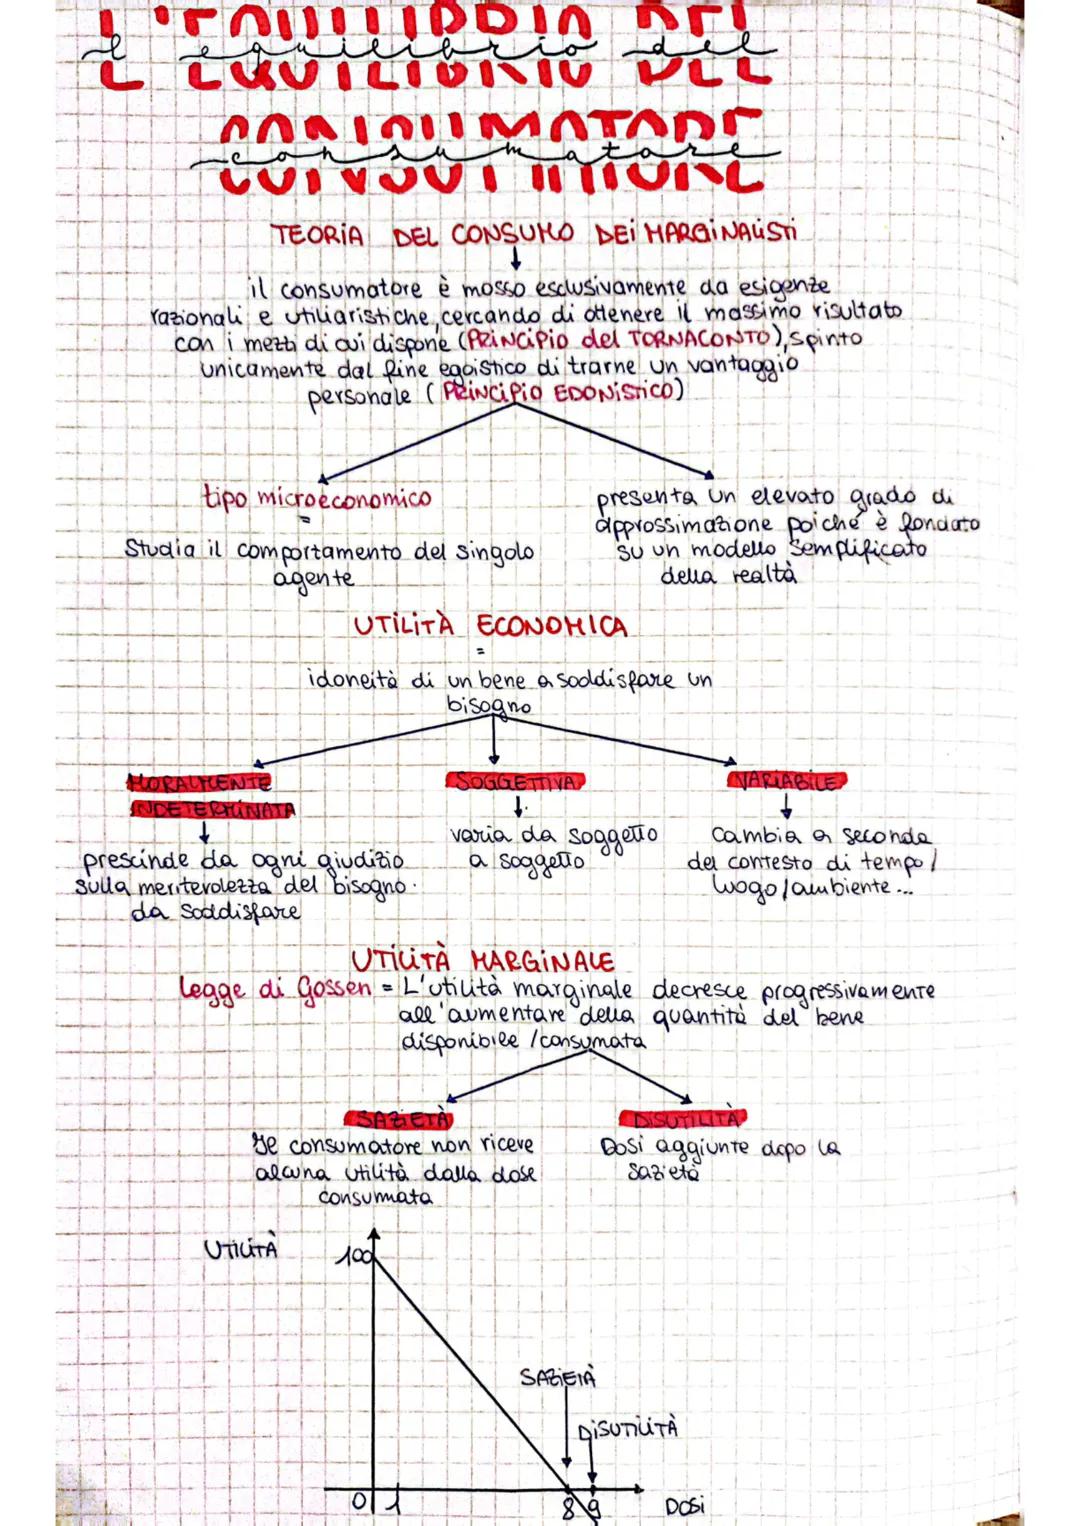 L'EQUILIBRIO DEL
l'equilibrio del
CONSUMATORE
consumatore
TEORIA DEL CONSUMO DEI MARGINALISTI
il consumatore è mosso esclusivamente da esigenze
razionali e utiliaristiche, cercando di ottenere il massimo risultato
con i mezzi di cui dispone (PRINCIPIO del TORNACONTO), spinto
unicamente dal fine egoistico di trarne un vantaggio
personale (PRINCIPIO EDONISTICO)
tipo microeconomico
=
Studia il comportamento del singolo
agente
presenta un elevato grado di
approssimazione poiché è fondato
su un modello semplificato
della realtà
UTILITÀ ECONOMICA
=
idoneità di un bene a soddisfare un
bisogno
MORALMENTE
INDETERMINATA
prescinde da ogni giudizio
sulla meritevolezza del bisogno
da soddisfare
SOGGETTIVA
varia da soggetto
a soggetto
VARIABILE
Cambia a seconda
del contesto di tempo/
luogo/ambiente...
UTILITÀ MARGINALE
Legge di Gossen = L'utilità marginale decresce progressivamente
all'aumentare della quantità del bene
disponibile /consumata
SAZIETÀ
se consumatore non riceve
alcuna utilità dalla dose
consumata
DISUTILITÀ
Dosi aggiunte dopo la
sazietà
UTILITÀ
100
SAZIETÀ
DISUTILITÀ
0 1 8 9 DOSI